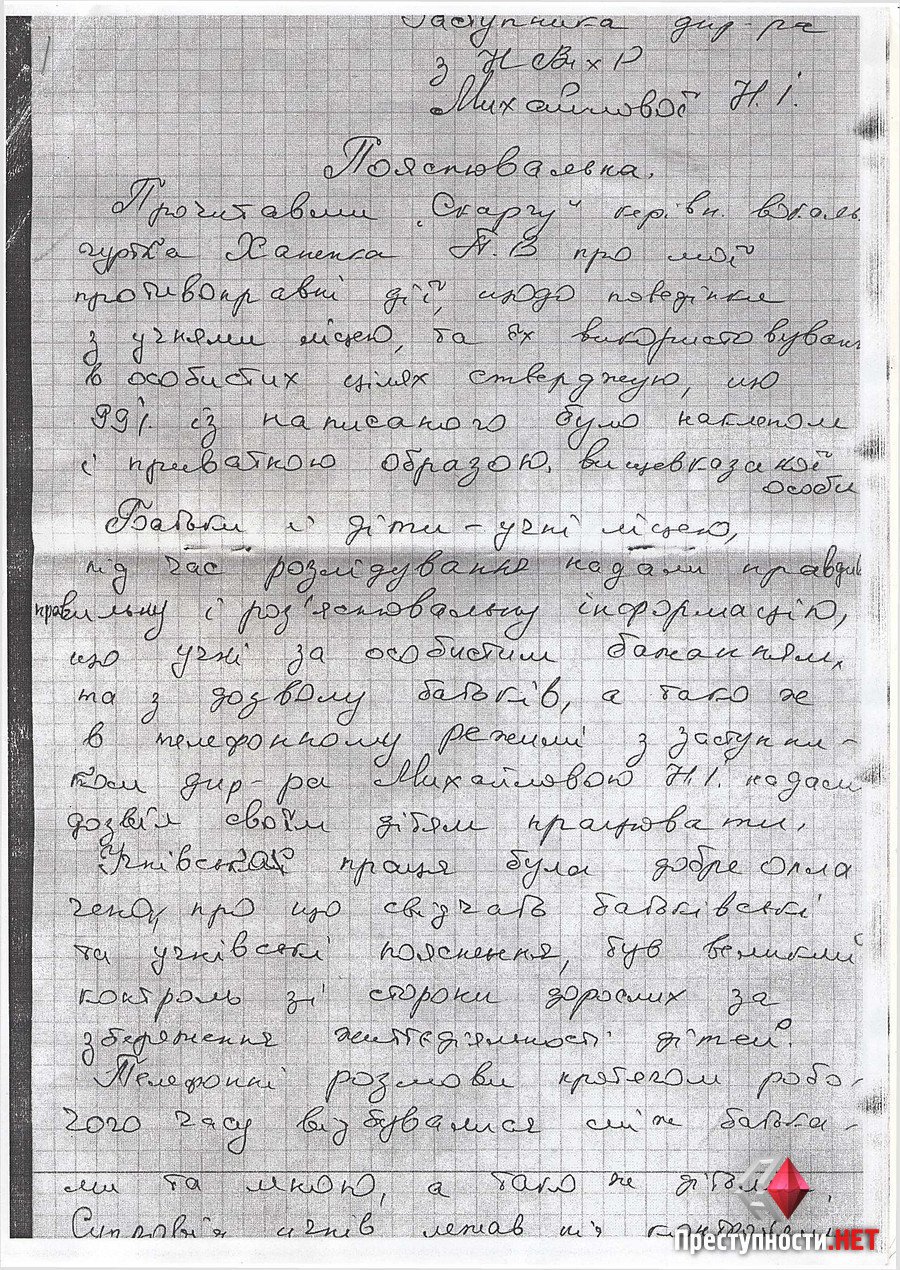 Заступника дир-ра
з НВихР
Михайлової Н.І.
Пояснювальна.
Прочитавши „Скаргу" керівн. вокаль
гуртка Ханенка П.В про мої
противоправні дії, щодо поведінки
з учнями ліцею, та їх використовуван
в особистих цілях стверджую, що
99% із написаного було наклепом
і приватною образою, вищевказаної
особи
Батьки і діти – учні ліцею,
під час розслідування надали правдив
правильну і роз'яснювальну інформацію,
що учні за особистим бажанням,
та з дозволу батьків, а також
в телефонному режимі з заступни-
ком дир-ра Михайловою Н.І. надали
дозвіл своїм дітям працювати.
Учнівська праця була добре опла
чена, про що свідчать батьківські
та учнівські пояснення, був великий
контроль зі сторони дорослих за
збереження життєдіяльності дітей.
Телефонні розмови протягом робо-
чого часу відбувалися між батька-
ми та мною, а також дітьми,
Супровід учнів лежав під
Преступности.НЕТ